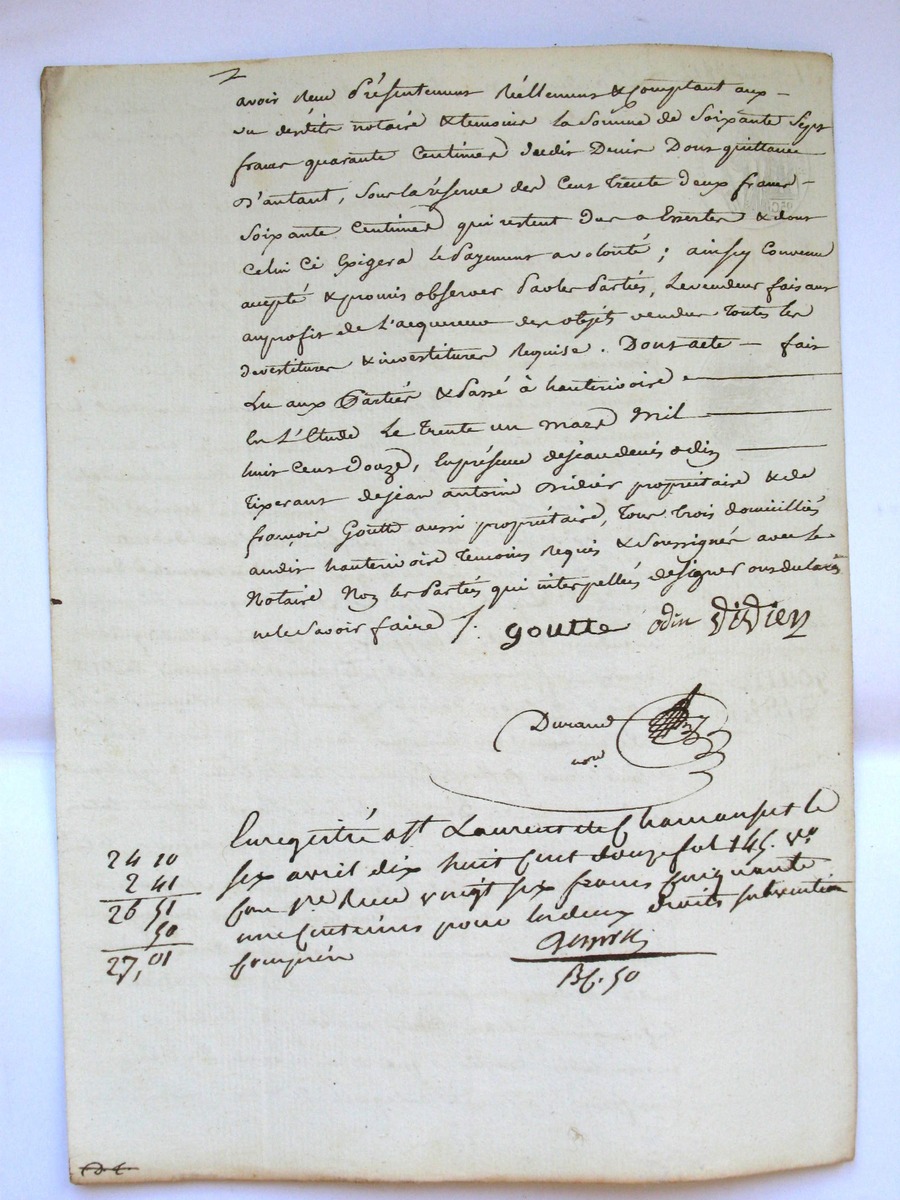 avoir reçu présentement réellement & comptant aux -
vu desdits notaire & temoins la somme de soixante sept
francs quarante centimes dudit Denis Dont quittance
D'autant, sous la réserve des cent trente deux francs -
soixante centimes qui restent dus a Esserter & dont
celui ci Exigera le payement a volonté ; ainsy convenu
accepté & promis observer par les parties, le vendeur faisant
au profit de l'acquereur des objets vendus toutes les
devestitures & investitures requise . Dont acte — fait
Lu aux Parties & passé à hauterivoire
En L'Etude Le trente un mars mil
huit cent douze, En présence de jean denis odin
Tixerant de jean antoine Didier propriétaire & de
françois Goutte aussi propriétaire, tous trois domiciliés
audit hauterivoire temoins requis & soussignés avec le
Notaire Non les parties qui interpellés de signer ont déclaré
ne le savoir faire /.
goutte odin didier
Durand
nore
Enregistré a St Laurent de Chamousset le
six avril dix huit cent douze fol 145. vo
Case 1re Reçu vingt six francs cinquante
une centimes pour les deux droits subvention
comprise
24 10
2 41
26 51
50
27,01
Bf. 50